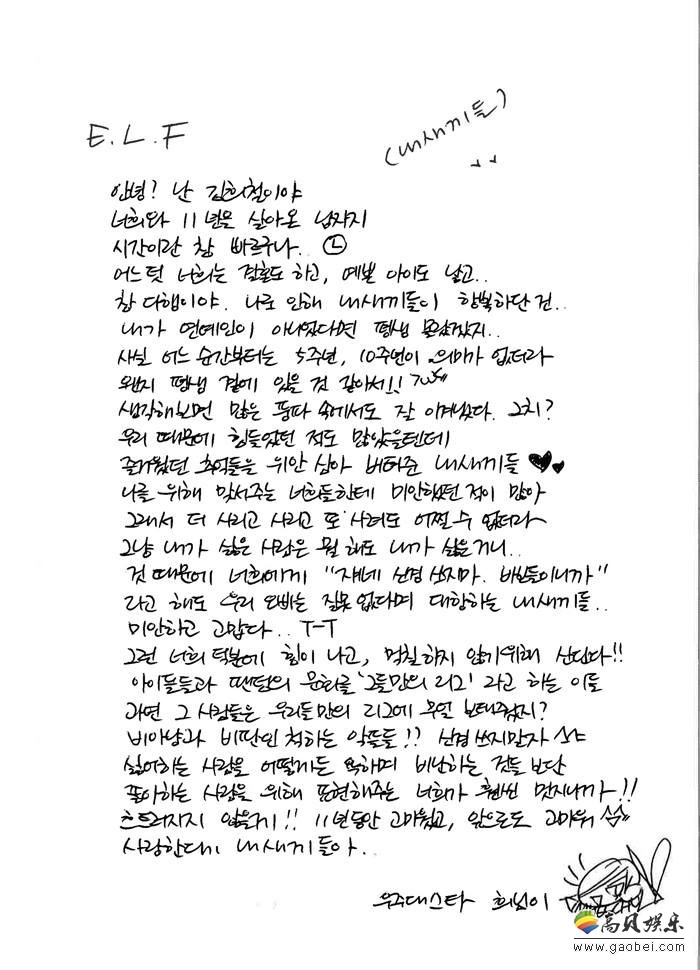 E.L.F
(내새끼들)
안녕? 난 김희철이야
너희와 11년을 살아온 남자지
시간이란 참 빠르구나..
어느덧 너희는 결혼도 하고, 예쁜 아이도 낳고..
참 다행이야. 나로 인해 내새끼들이 행복하단 건..
내가 연예인이 아니었다면 평생 몰랐겠지..
사실 어느 순간부터는 5주년, 10주년이 의미가 없더라
왠지 평생 곁에 있을 것 같아서!!
생각해보면 많은 풍파 속에서도 잘 이겨냈다. 그치?
우리 때문에 힘들었던 적도 많았을텐데
즐거웠던 추억들을 위안 삼아 버텨준 내새끼들
나를 위해 맞서주는 너희들한테 미안했던 적이 많아
그래서 더 사리고 사리고 또 사려도 어쩔 수 없더라
그냥 내가 싫은 사람은 뭘 해도 내가 싫은거니..
것 때문에 너희에게 "쟤네 신경 쓰지마. 비싼돌이니까"
라고 해도 우리 오빠는 잘못 없다며 대항하는 내새끼들..
미안하고 고맙다.. T-T
그런 너희 덕분에 힘이 나고, 먹칠하지 않기위해 산단다!!
아이돌들과 팬덤의 문화를 '그들만의 리그' 라고 하는 이들
과연 그 사람들은 우리들만의 리그에 무얼 보태주었지?
비아냥과 비판인 척하는 악플들!! 신경 쓰지말자
싫어하는 사람을 어떻게든 욕하며 비난하는 것들 보단
좋아하는 사람을 위해 표현해주는 너희가 훨씬 멋지니까!!
흐트러지지 않을게!! 11년동안 고마웠고, 앞으로도 고마워
사랑한다 내새끼들아..
우주대스타 희님이
高贝娱乐
www.gaobei.com